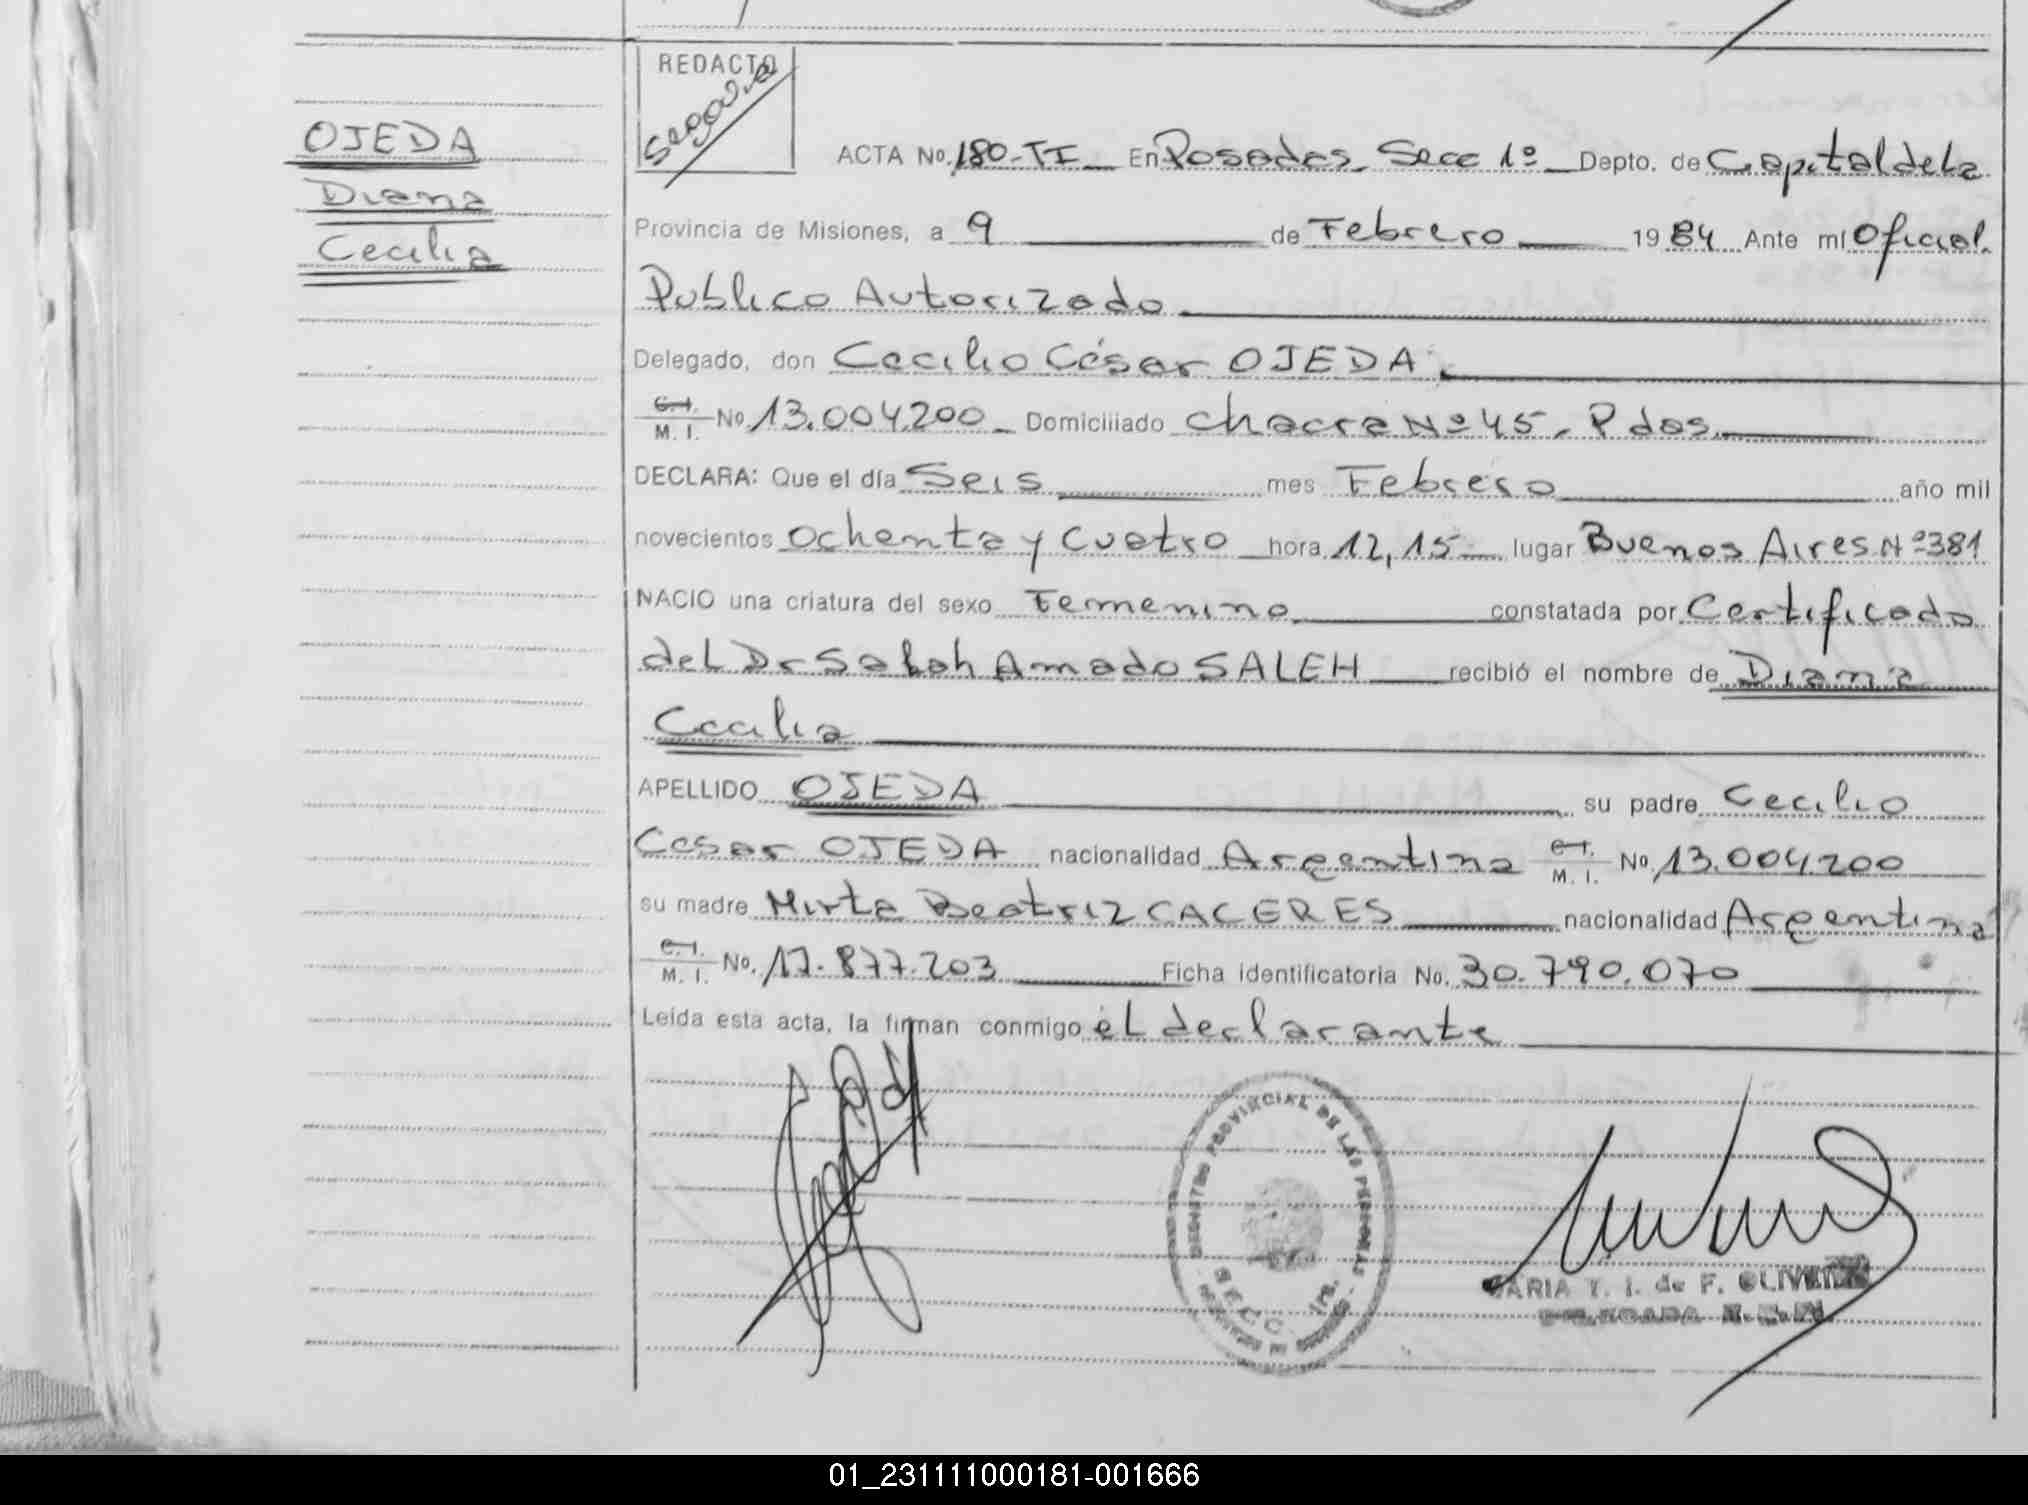 REDACTO
OJEDA
Diana
Cecilia
ACTA No. 180-TI En Posadas Secc 1º Depto. de Capital de La
Provincia de Misiones, a 9 de Febrero 1984 Ante mí Oficial
Publico Autorizado
Delegado, don Cecilio César OJEDA
C.I. M. I. No 13.004.200 Domiciliado Chacra Nº 45. Pdas.
DECLARA: Que el día Seis mes Febrero año mil
novecientos Ochenta y Cuatro hora 12,15 lugar Buenos Aires Nº 381
NACIO una criatura del sexo Femenino constatada por Certificado
del Dr Salah Amado SALEH recibió el nombre de Diana
Cecilia
APELLIDO OJEDA su padre Cecilio
Cesar OJEDA nacionalidad Argentina C.I. M. I. No. 13.004.200
su madre Mirta Beatriz CACERES nacionalidad Argentina
C.I. M. I. No. 17.877.203 Ficha identificatoria No. 30.790.070
Leída esta acta, la firman conmigo el declarante
REGISTRO PROVINCIAL DE LAS PERSONAS
MARIA T. I. de F. OLIVEIRA
DELEGADA
01_231111000181-001666